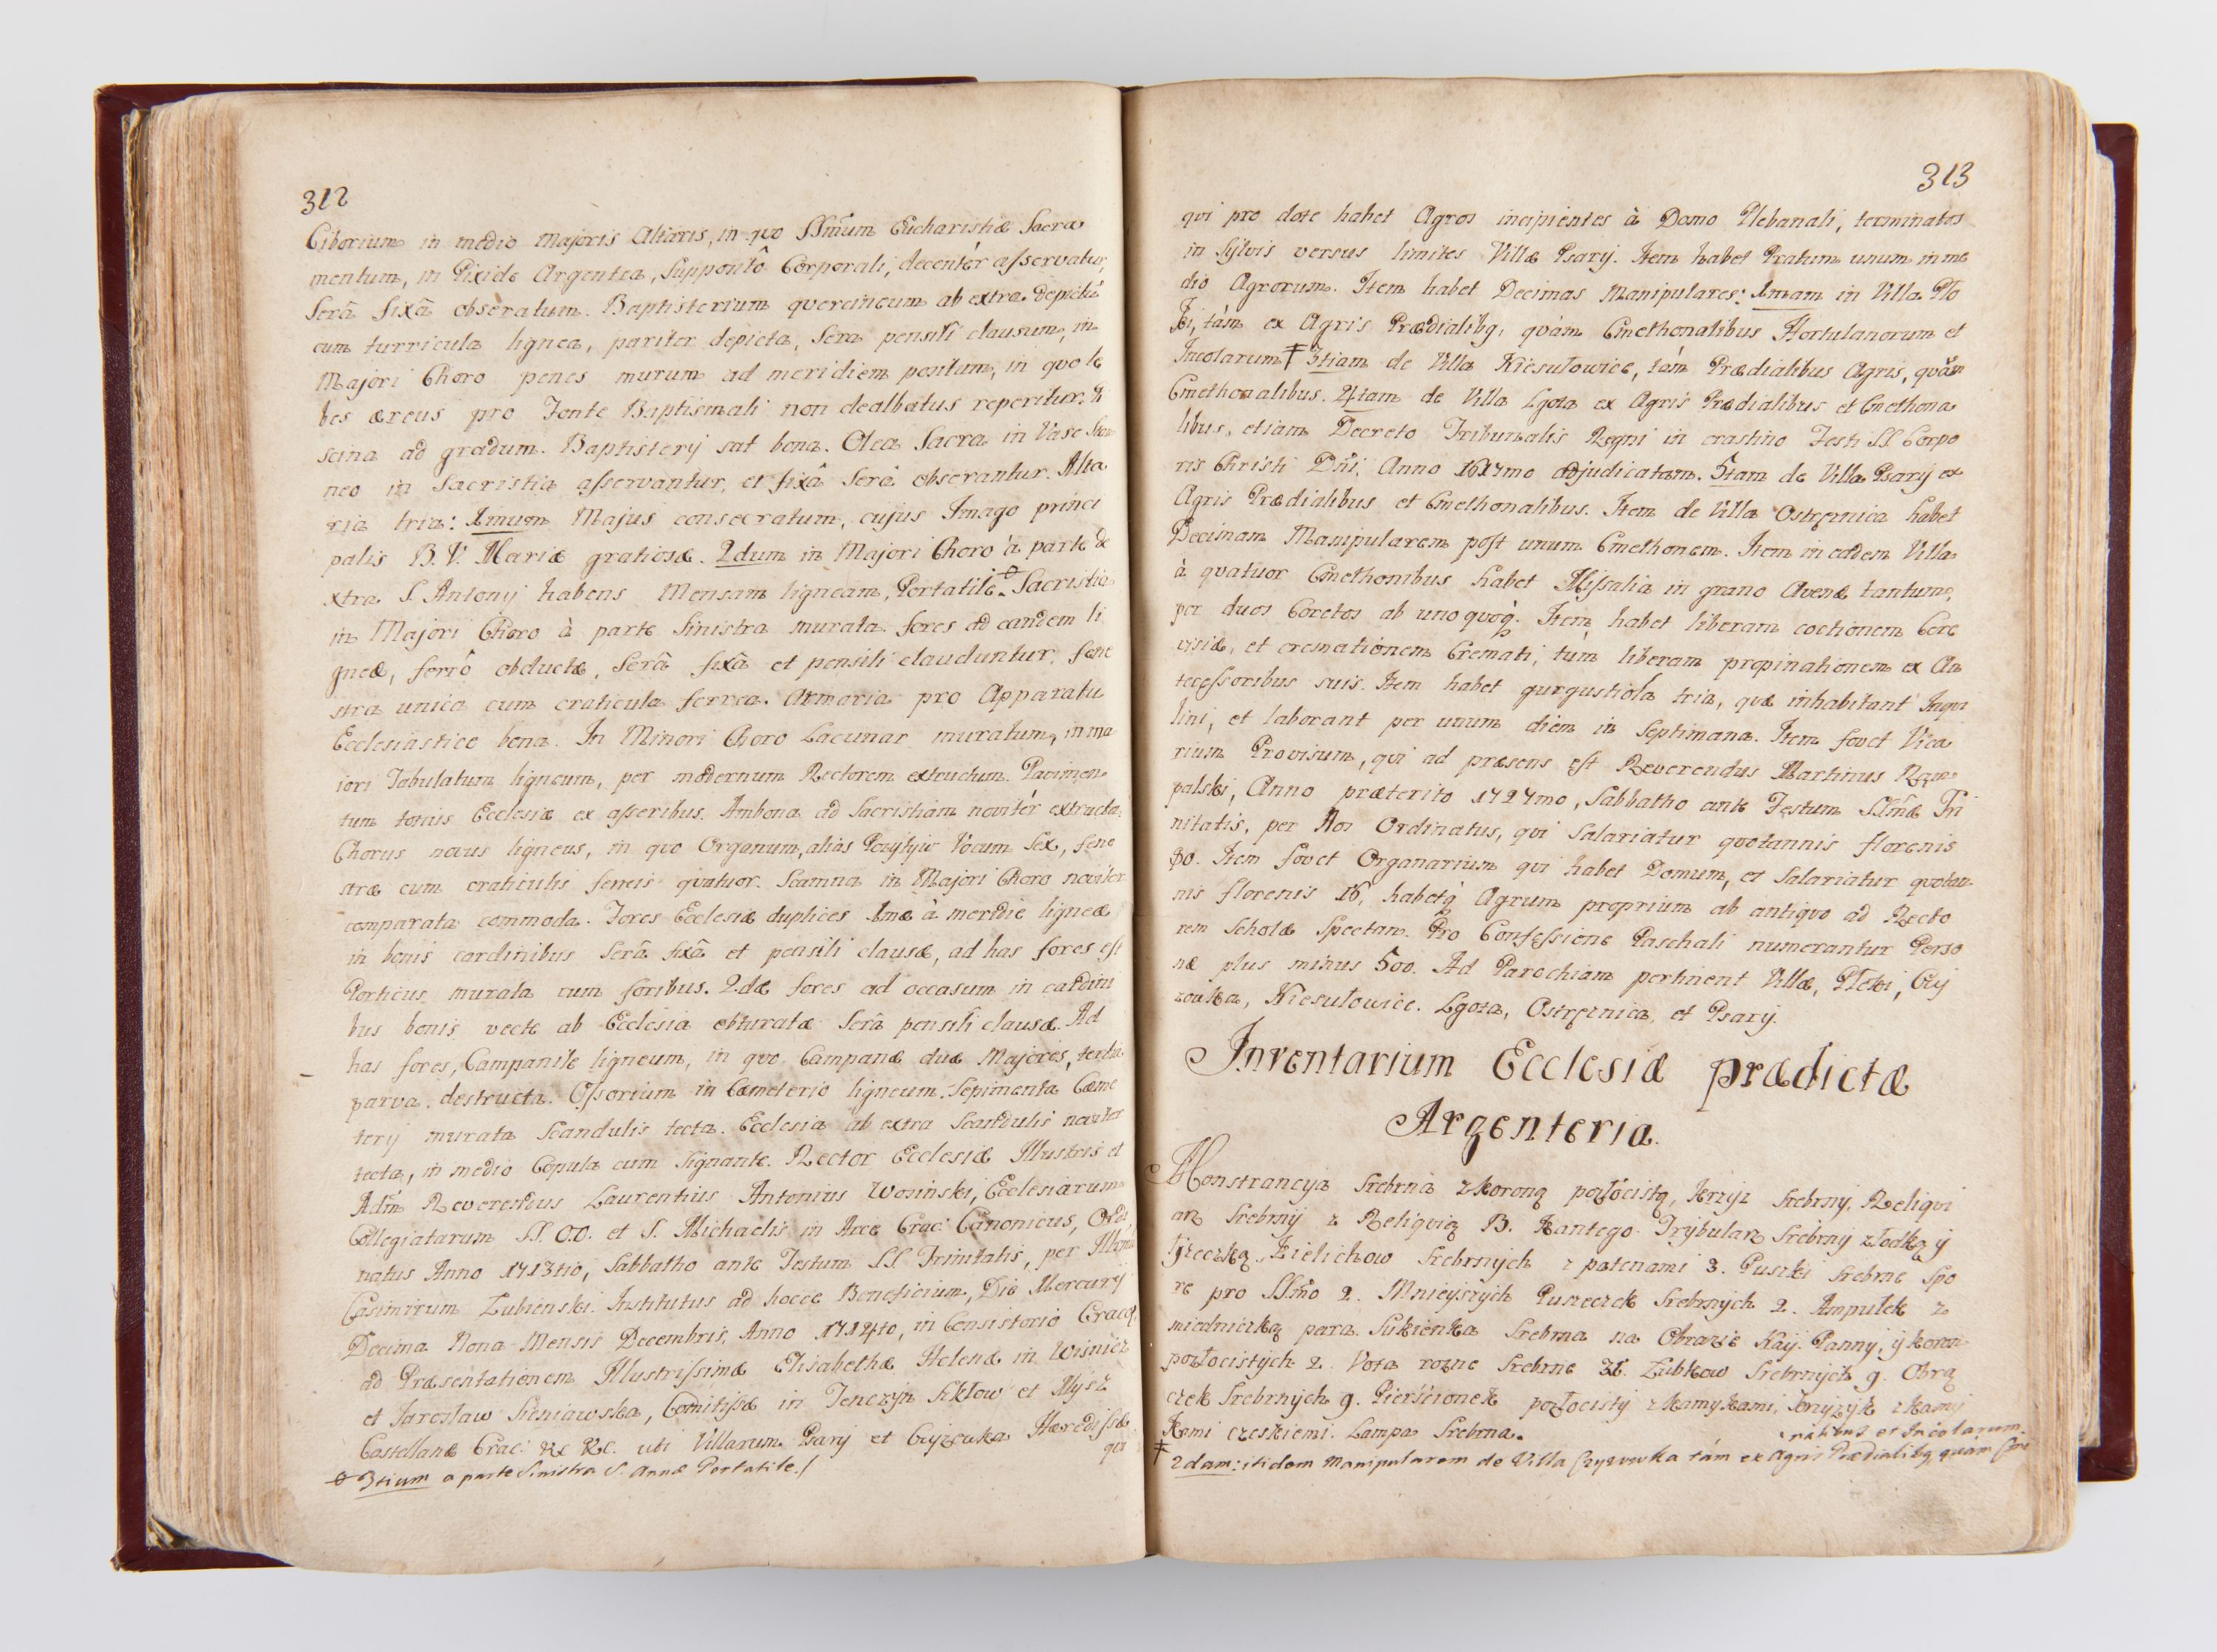 312
Ciborium in medio Majoris Altaris, in quo SSm̃um Eucharistiæ Sacra
mentum, in Pixide Argentea, Supposito Corporali, decentèr asservatur,
Serâ fixâ obseratum. Baptisterium quercineum ab extra depictũ
cum turricula lignea, pariter depicta, Sera pensili clausum, in
Majori Choro penes murum ad meridiem positum, in quo le
bes æreus pro Fonte Baptismali non dealbatus reperitur.
scina ad gradum Baptisterij sat bona. Olea Sacra in Vase Stan
neo in Sacristia asservantur, et fixâ Serâ obserantur. Alta
ria tria: 1mum Majus consecratum, cujus Imago princi
palis B. V. Mariæ gratiosæ. 2dum in Majori Choro à parte de
xtra S. Antonij habens Mensam ligneam, Portatile. Sacristia
in Majori Choro à parte Sinistra murata. fores ad eandem li
gneæ, ferrô obductæ, Serâ fixâ et pensili clauduntur. fene
stra unica cum craticula ferrea. Armaria pro Apparatu
Ecclesiastico bona. In Minori Choro Lacunar muratum, in ma
iori Tabulatum ligneum, per modernum Rectorem extructum. Pavimen
tum totius Ecclesiæ ex asseribus. Ambona ad Sacristiam novitèr extructa.
Chorus novus ligneus, in quo Organum, alias Pozytyw Vocum Sex, fene
stræ cum craticulis ferreis quatuor. Scamna in Majori Choro noviter
comparata commoda. Fores Ecclesiæ duplices 1mæ à meridie ligneæ
in bonis cardinibus Serâ fixâ et pensili clausæ, ad has fores est
Porticus murata cum foribus. 2dæ fores ad occasum in cardini
bus bonis vecte ab Ecclesia obturatæ Serâ pensili clausæ. Ad
has fores, Campanile ligneum, in quo Campanæ duæ Majores, tertia
parva destructa. Ossorium in Cæmeterio ligneum. Sepimenta Cæme
terij murata Scandulis tecta. Ecclesia ab extra Scandulis noviter
tecta, in medio Copula cum Signante. Rector Ecclesiæ Illustris et
Adm̃ Reverendus Laurentius Antonius Wosinski, Ecclesiarum
Collegiatarum SS. OO. et S. Michaelis in Arce Crac: Canonicus, Ordi
natus Anno 1713tio, Sabbatho ante Festum SS Trinitatis, per
Casimirum Łubienski. Institutus ad hocce Beneficium, Die Mercurij
Decima Nona Mensis Decembris, Anno 1714to, in Consistorio Crac:
ad Præsentationem Illustrissimæ Elisabethæ Helenæ in Wisnicz
et Jarosław Sieniawska, Comitissæ in Tenczyn Szkłow et Mysz
Castellanæ Crac: &c &c. uti Villarum Psary et Czyzowka Hæredissæ
qui
3tium a parte Sinistra S. Annæ Portatile./
313
qui pro dote habet Agros incipientes à Domo Plebanali, terminatos
in Sylvis versus limites Villæ Psary. Item habet Pratum unum in me
dio Agrorum. Item habet Decimas Manipulares: 1mam in Villa Pło
ki, tàm ex Agris Prædialibq, quàm Cmethonalibus Hortulanorum et
Incolarum ‡ 3tiam de Villa Kiesułowice, tám Prædialibus Agris, quàm
Cmethonalibus. 4tam de Villa Lgota ex Agris Prædialibus et Cmethona
libus, etiam Decreto Tribunalis Regni in crastino Festi SS Corpo
ris Christi Dñi, Anno 1617mo adjudicatam. 5tam de Villa Psary ex
Agris Prædialibus et Cmethonalibus. Item de Villa Ostręznica habet
Decimam Manipularem post unum Cmethonem. Item in eadem Villa
à quatuor Cmethonibus habet Missalia in grano Avenæ tantum,
per duos Coretos ab unoquoq. Item habet liberam coctionem Cere
visiæ, et cremationem Cremati, tùm liberam propinationem ex An
tecessoribus suis. Item habet gurgustiola tria, quæ inhabitant Inqui
lini, et laborant per unum diem in Septimana. Item fovet Vica
rium Provisum, qui ad præsens est Reverendus Martinus Rze
palski, Anno præterito 1727mo, Sabbatho ante Festum SSm̃æ Tri
nitatis, per Nos Ordinatus, qui Salariatur quotannis florenis
80. Item fovet Organarium qui habet Domum, et Salariatur quotan
nis florenis 16, habetq Agrum proprium ab antiquo ad Recto
rem Scholæ Spectan. Pro Confessione Paschali numerantur Perso
næ plus minus 500. Ad Parochiam pertinent Villæ, Płoki, Czy
zowka, Kiesułowice. Lgota, Ostręznica, et Psary.
Inventarium Ecclesiæ prædictæ
Argenteria.
Monstrancya Srebrna z koroną pozłocistą, krzyz Srebrny, Reliqui
arz Srebrny z Reliquią B. Kantego. Trybularz Srebrny z łodką y
łyzeczką. Kielichow Srebrnych z patenami 3. Puszki Srebrne Spo
re pro SSm̃o 2. Mnieyszych Puszeczek Srebrnych 2. Ampułek z
miedniczką para. Sukienka Srebrna na Obrazie Nay: Panny, y koron
pozłocistych 2. Vota rozne Srebrne 36. Ząbkow Srebrnych 9. Obrą
czek Srebrnych 9. Pierścionek pozłocisty z kamykami, krzyzyk z kamy
kami czeskiemi. Lampa Srebrna.
nalibus et Incolarum.
‡ 2dam: itidem Manipularem de Villa Czyzowka tám ex Agris Prædialibq quàm Cme